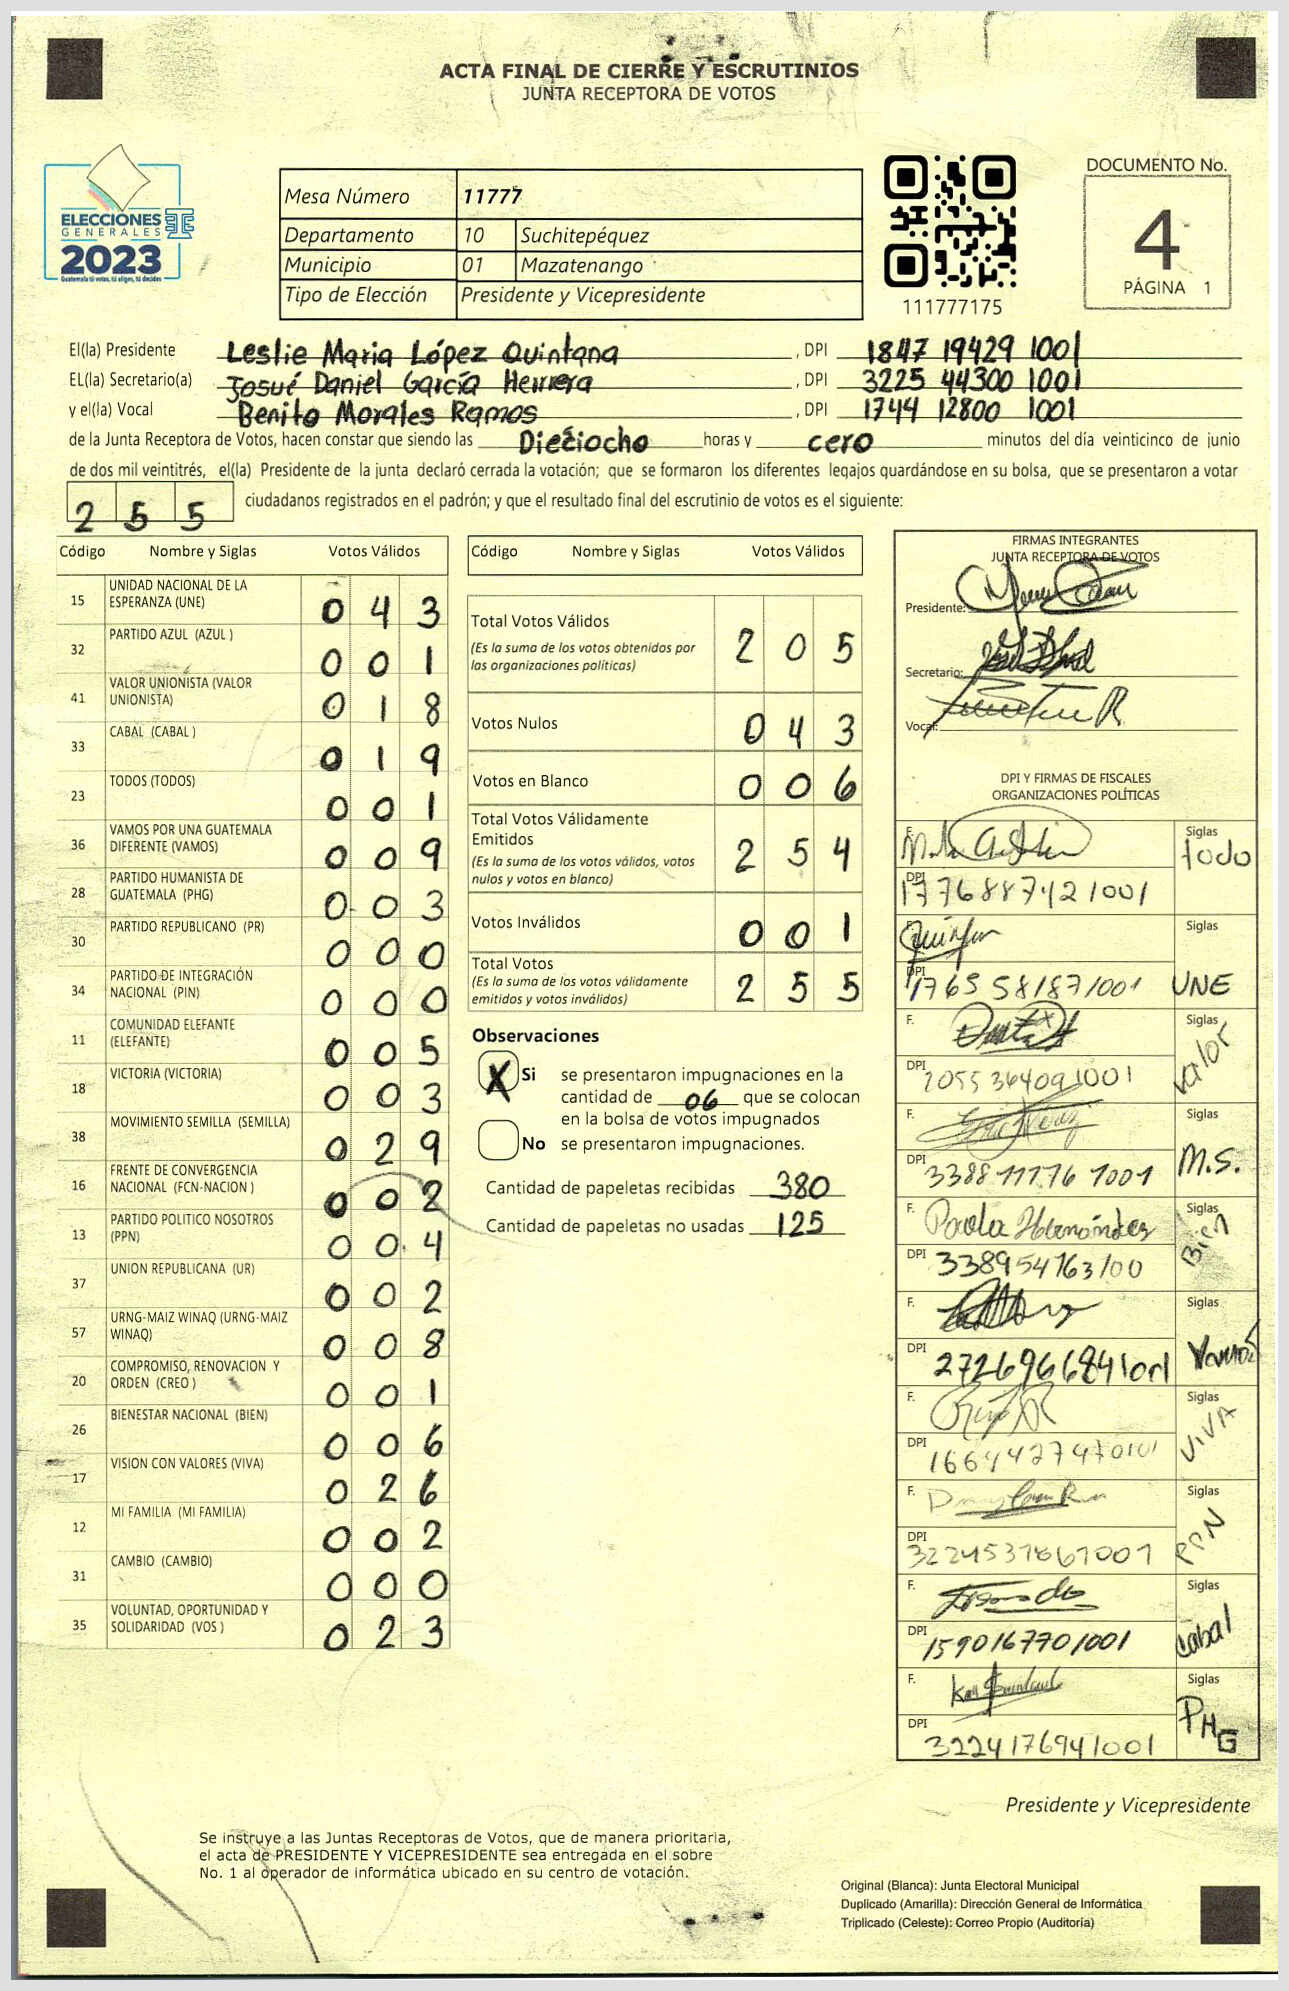 ACTA FINAL DE CIERRE Y ESCRUTINIOS
JUNTA RECEPTORA DE VOTOS
ELECCIONES
GENERALES
2023
Guatemala tú votas, tú eliges, tú decides
Mesa Número 11777
Departamento 10 Suchitepéquez
Municipio 01 Mazatenango
Tipo de Elección Presidente y Vicepresidente
111777175
DOCUMENTO No.
4
PÁGINA 1
El(la) Presidente Leslie Maria López Quintana , DPI 1847 19429 1001
EL(la) Secretario(a) Josué Daniel García Herrera , DPI 3225 44300 1001
y el(la) Vocal Benito Morales Ramos , DPI 1744 12800 1001
de la Junta Receptora de Votos, hacen constar que siendo las Dieciocho horas y cero minutos del día veinticinco de junio
de dos mil veintitrés, el(la) Presidente de la junta declaró cerrada la votación; que se formaron los diferentes legajos quardándose en su bolsa, que se presentaron a votar
255 ciudadanos registrados en el padrón; y que el resultado final del escrutinio de votos es el siguiente:
Código Nombre y Siglas Votos Válidos
15 UNIDAD NACIONAL DE LA ESPERANZA (UNE) 043
32 PARTIDO AZUL (AZUL ) 001
41 VALOR UNIONISTA (VALOR UNIONISTA) 018
33 CABAL (CABAL ) 019
23 TODOS (TODOS) 001
36 VAMOS POR UNA GUATEMALA DIFERENTE (VAMOS) 009
28 PARTIDO HUMANISTA DE GUATEMALA (PHG) 003
30 PARTIDO REPUBLICANO (PR) 000
34 PARTIDO DE INTEGRACIÓN NACIONAL (PIN) 000
11 COMUNIDAD ELEFANTE (ELEFANTE) 005
18 VICTORIA (VICTORIA) 003
38 MOVIMIENTO SEMILLA (SEMILLA) 029
16 FRENTE DE CONVERGENCIA NACIONAL (FCN-NACION ) 002
13 PARTIDO POLITICO NOSOTROS (PPN) 004
37 UNION REPUBLICANA (UR) 002
57 URNG-MAIZ WINAQ (URNG-MAIZ WINAQ) 008
20 COMPROMISO, RENOVACION Y ORDEN (CREO ) 001
26 BIENESTAR NACIONAL (BIEN) 006
17 VISION CON VALORES (VIVA) 026
12 MI FAMILIA (MI FAMILIA) 002
31 CAMBIO (CAMBIO) 000
35 VOLUNTAD, OPORTUNIDAD Y SOLIDARIDAD (VOS ) 023
Código Nombre y Siglas Votos Válidos
Total Votos Válidos 205
(Es la suma de los votos obtenidos por
las organizaciones políticas)
Votos Nulos 043
Votos en Blanco 006
Total Votos Válidamente
Emitidos 254
(Es la suma de los votos válidos, votos
nulos y votos en blanco)
Votos Inválidos 001
Total Votos 255
(Es la suma de los votos válidamente
emitidos y votos inválidos)
Observaciones
X Si se presentaron impugnaciones en la
cantidad de 06 que se colocan
en la bolsa de votos impugnados
No se presentaron impugnaciones.
Cantidad de papeletas recibidas 380
Cantidad de papeletas no usadas 125
FIRMAS INTEGRANTES
JUNTA RECEPTORA DE VOTOS
Presidente:
Secretario:
Vocal:
DPI Y FIRMAS DE FISCALES
ORGANIZACIONES POLÍTICAS
F. Siglas todo
DPI 1776887421001
Siglas UNE
DPI 1765581871001
F. Siglas valor
DPI 2055364091001
F. Siglas M.S.
DPI 3388111761001
F. Paola Hernández Siglas Bien
DPI 338954763100
F. Siglas Vamos
DPI 2726966841001
F. Siglas VIVA
DPI 1664427470101
F. Siglas PPN
DPI 3224537861001
F. Siglas Cabal
DPI 1590167701001
F. Siglas PHG
DPI 3224176941001
Presidente y Vicepresidente
Se instruye a las Juntas Receptoras de Votos, que de manera prioritaria,
el acta de PRESIDENTE Y VICEPRESIDENTE sea entregada en el sobre
No. 1 al operador de informática ubicado en su centro de votación.
Original (Blanca): Junta Electoral Municipal
Duplicado (Amarilla): Dirección General de Informática
Triplicado (Celeste): Correo Propio (Auditoría)